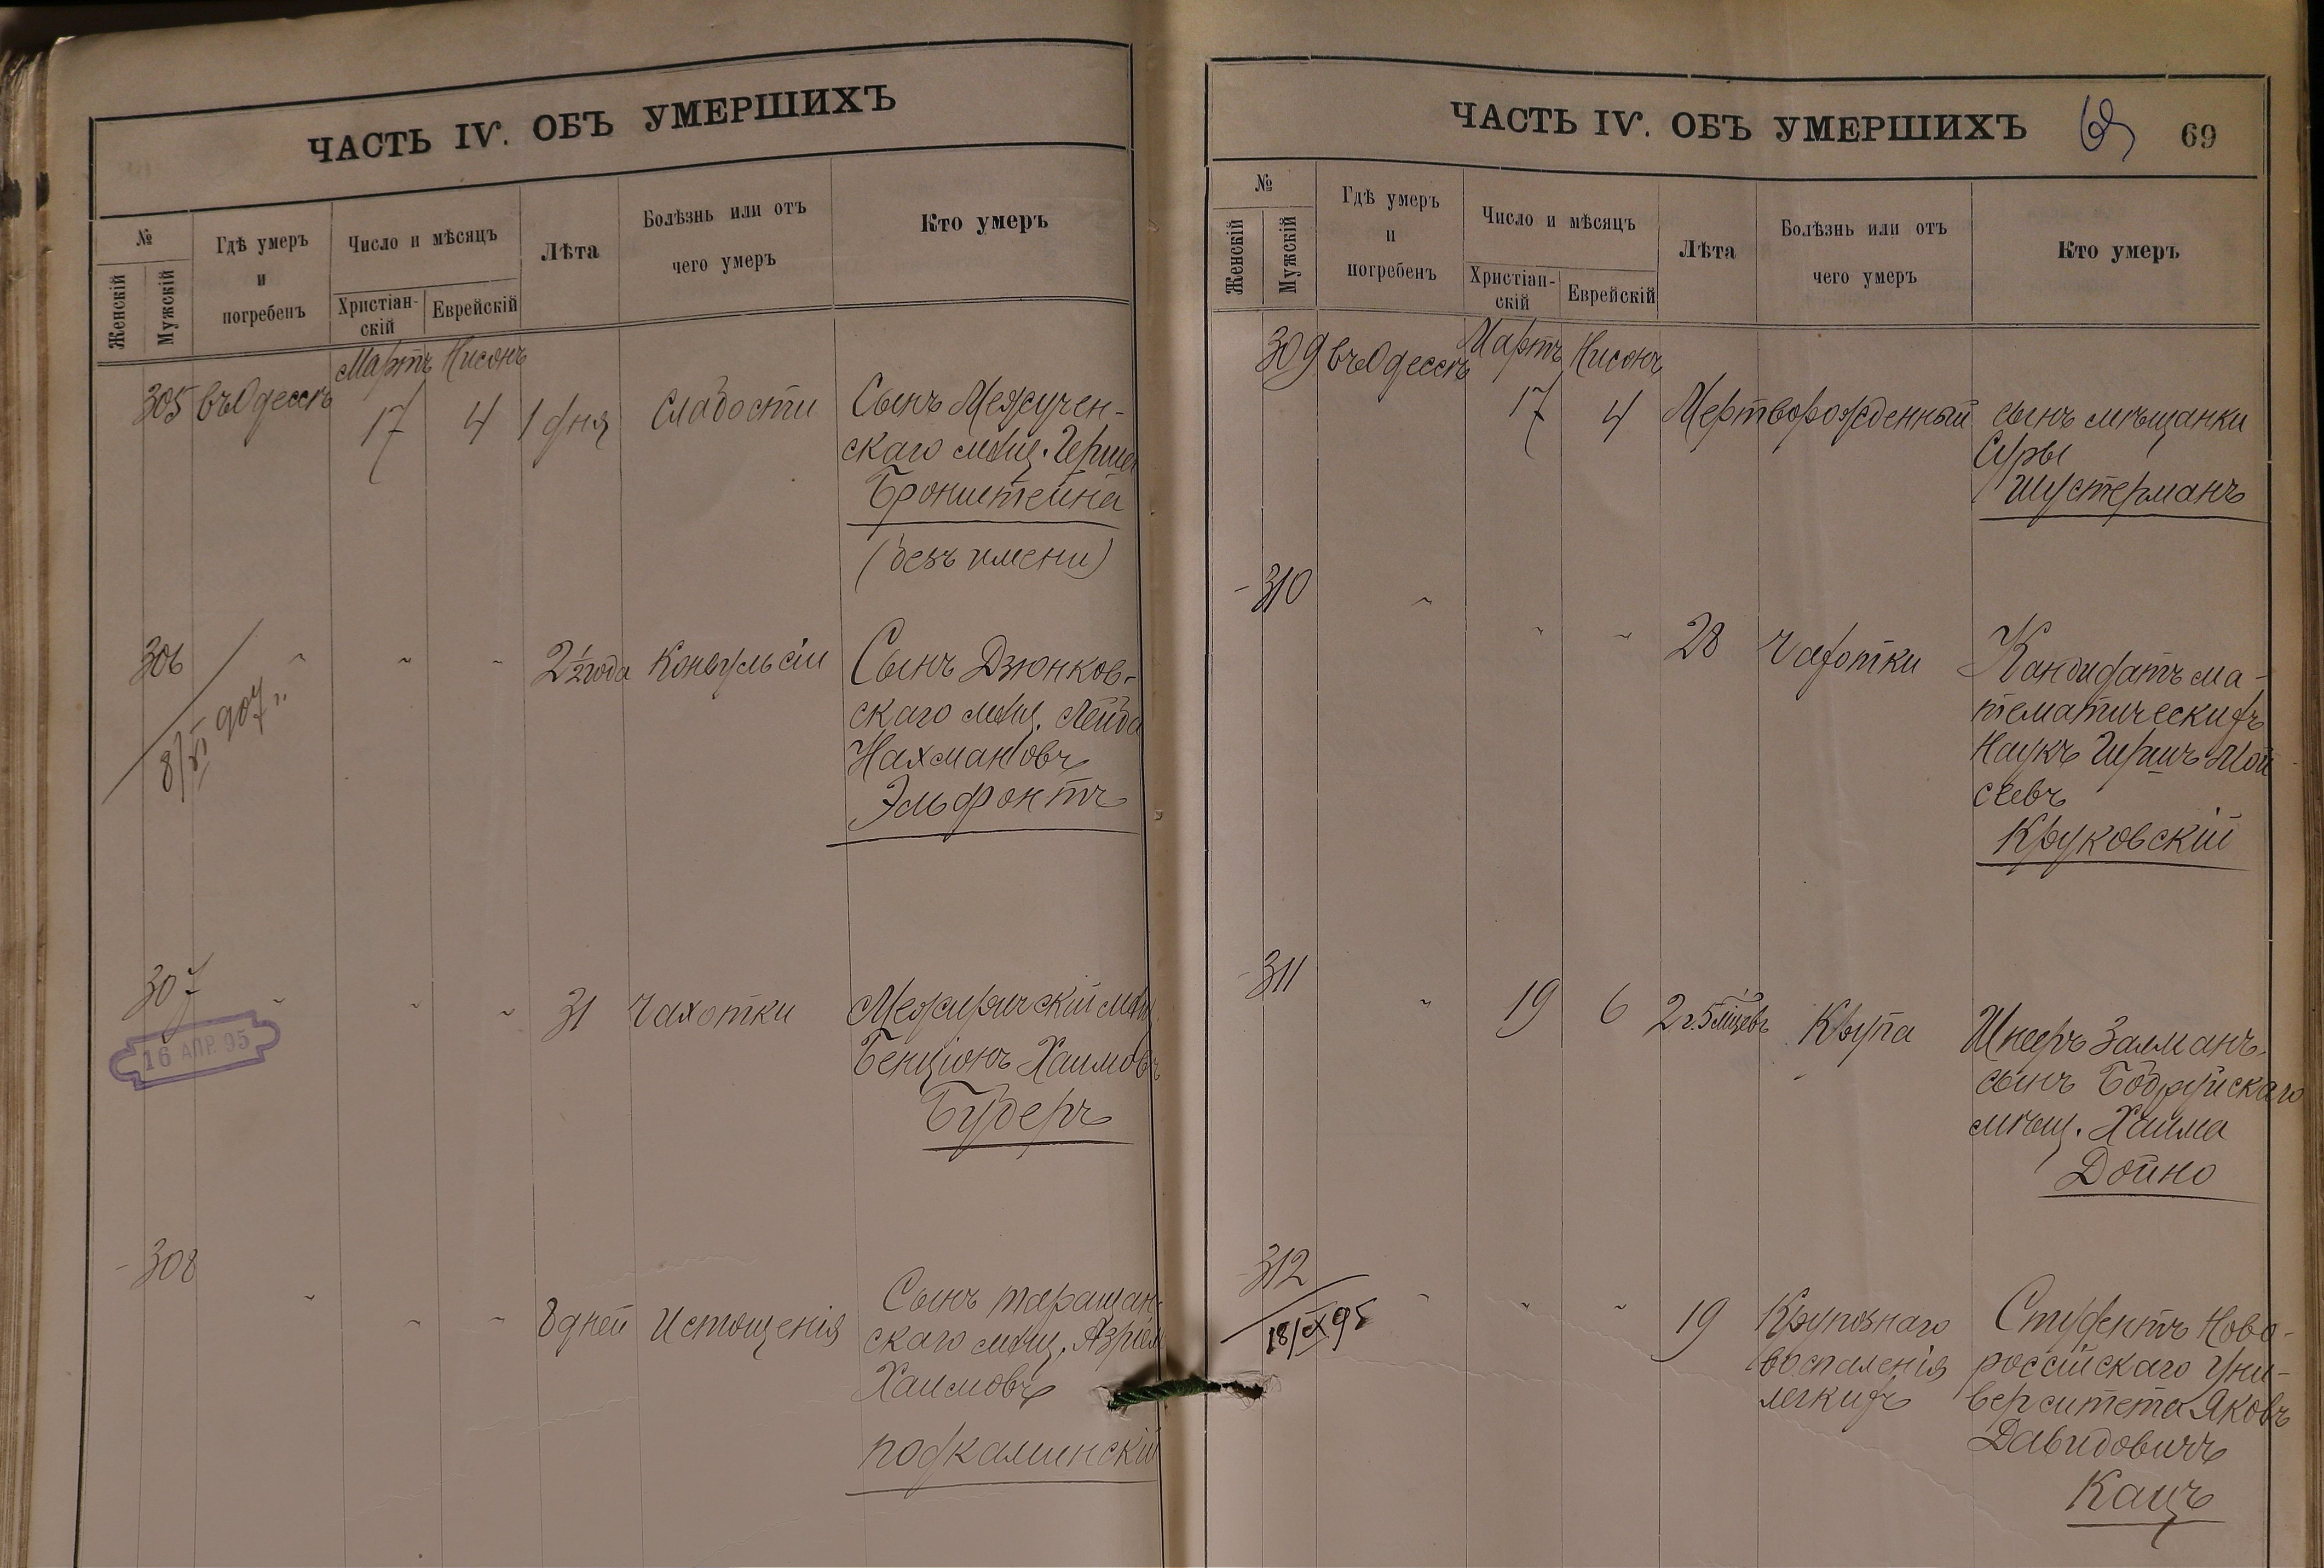 ЧАСТЬ IV. ОБЪ УМЕРШИХЪ
№
Женскій
Мужскій
Гдѣ умеръ
и
погребенъ
Число и мѣсяцъ
Христіан-
скій
Еврейскій
Лѣта
Болѣзнь или отъ
чего умеръ
Кто умеръ
Мартъ Нисонъ
305 въ Одессѣ 17 4 1 дня Слабости Сынъ
скаго мѣщ. Герша
Бронштейна
(безъ имени)
306 " " " 2½ года Конвульсіи Сынъ Дзюнков-
скаго мѣщ. Лейба
Нахмановъ
Эльфонтъ
8/XI 907
307 " " " 31 Чахотки Межиричскій мѣщ
Бенціонъ Хаимовъ
Будеръ
16 АПР. 95
308 " " " 8 дней Истощенія Сынъ таращан-
скаго мѣщ. Азріель
Хаимовъ
Подкаминскій
ЧАСТЬ IV. ОБЪ УМЕРШИХЪ 69 69
№
Женскій
Мужскій
Гдѣ умеръ
и
погребенъ
Число и мѣсяцъ
Христіан-
скій
Еврейскій
Лѣта
Болѣзнь или отъ
чего умеръ
Кто умеръ
Мартъ Нисонъ
309 въ Одессѣ 17 4 Мертворожденный сынъ мѣщанки
Суры
Шустерманъ
310 " " " 28 Чахотки Кандидатъ ма-
тематическихъ
Наукъ Гершъ Мой
сеевъ
Круковскій
311 " 19 6 2 г. 5 мцевъ Крупа Шнееръ Залманъ-
сынъ Бобруйскаго
мѣщ. Хаима
Дойно
312 " " " 19 Крупознаго Студентъ Ново-
воспаленія россійскаго Уни-
легкихъ верситета Яковъ
Давидовичъ
Кацъ
18/IX 95